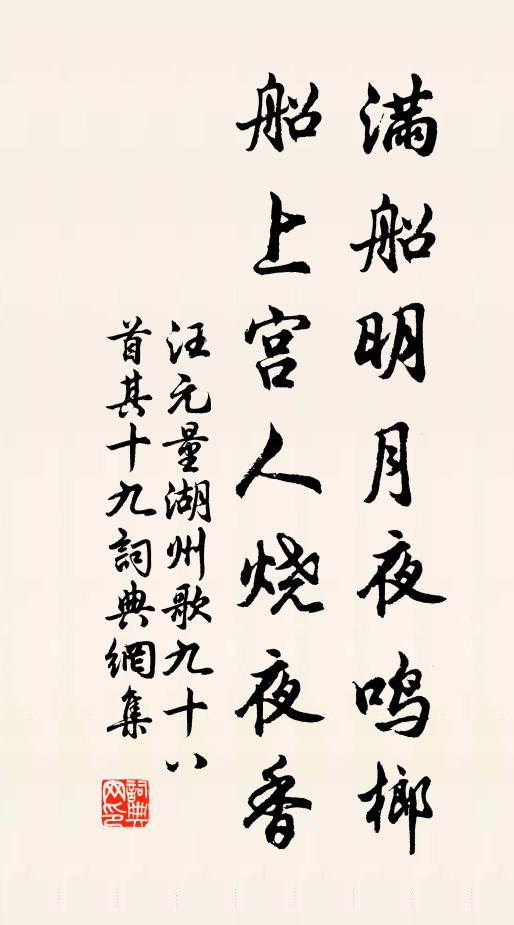 满船明月夜鸣榔
船上宫人烧夜香
汪元量湖州歌九十八
首其十九詞典網集
詞典
网印